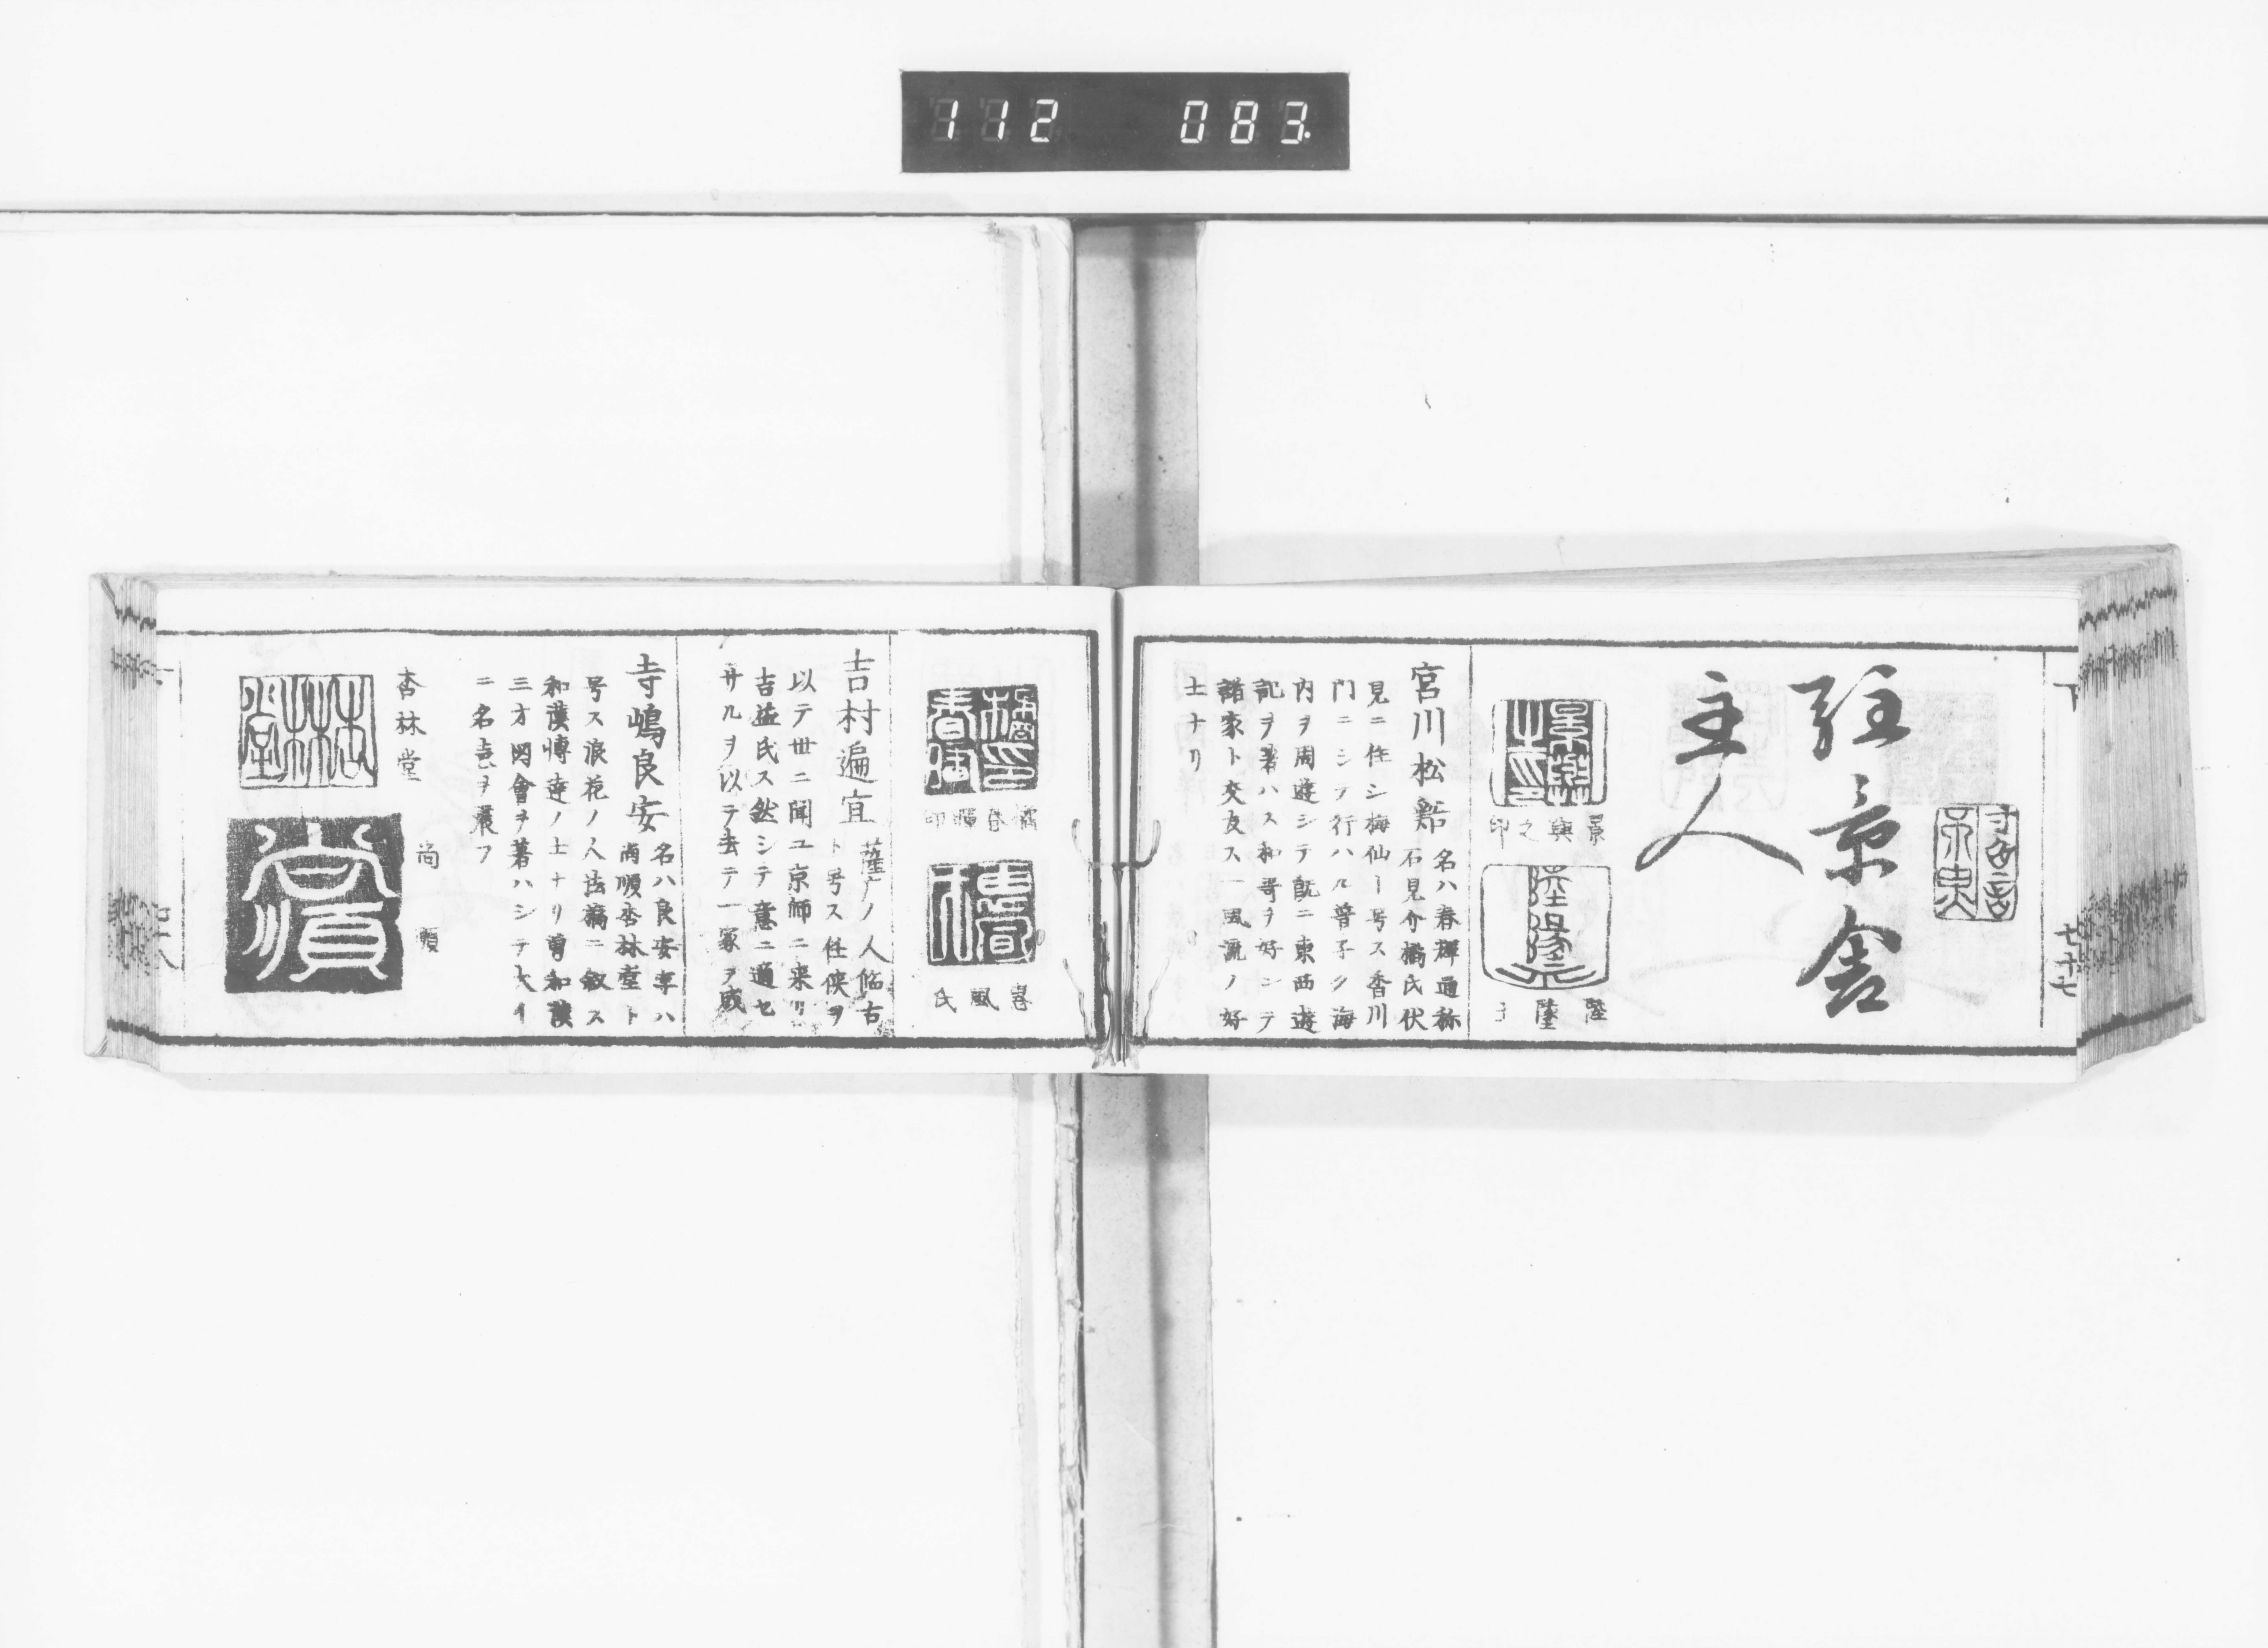 112 083.
下
七十七
駐景舎
主人
景輿之印
宮川松
名ハ春暉通称
石見介橘氏伏
見ニ住シ梅仙ト号ス香川
門ニシテ行ハル曽子ク海
内ヲ周遊シテ既ニ東西遊
記ヲ著ハス和哥ヲ好ンテ
諸家ト交友ス一風流ノ好
士ナリ
橘春暉印
吉村遍宜
薩ノ人臨古
ト号ス任侠ヲ
以テ世ニ聞ユ京師ニ来リ
吉益氏ス然シテ意ニ適セ
サルヲ以テ去テ一家ヲ成
寺嶋良安
名ハ良安字ハ
尚順杏林堂ト
号ス浪花ノ人法橋ニ叙ス
和漢博達ノ士ナリ曽和漢
三才図會ヲ著ハシテ大イ
ニ名声ヲ震フ
杏林堂
尚順